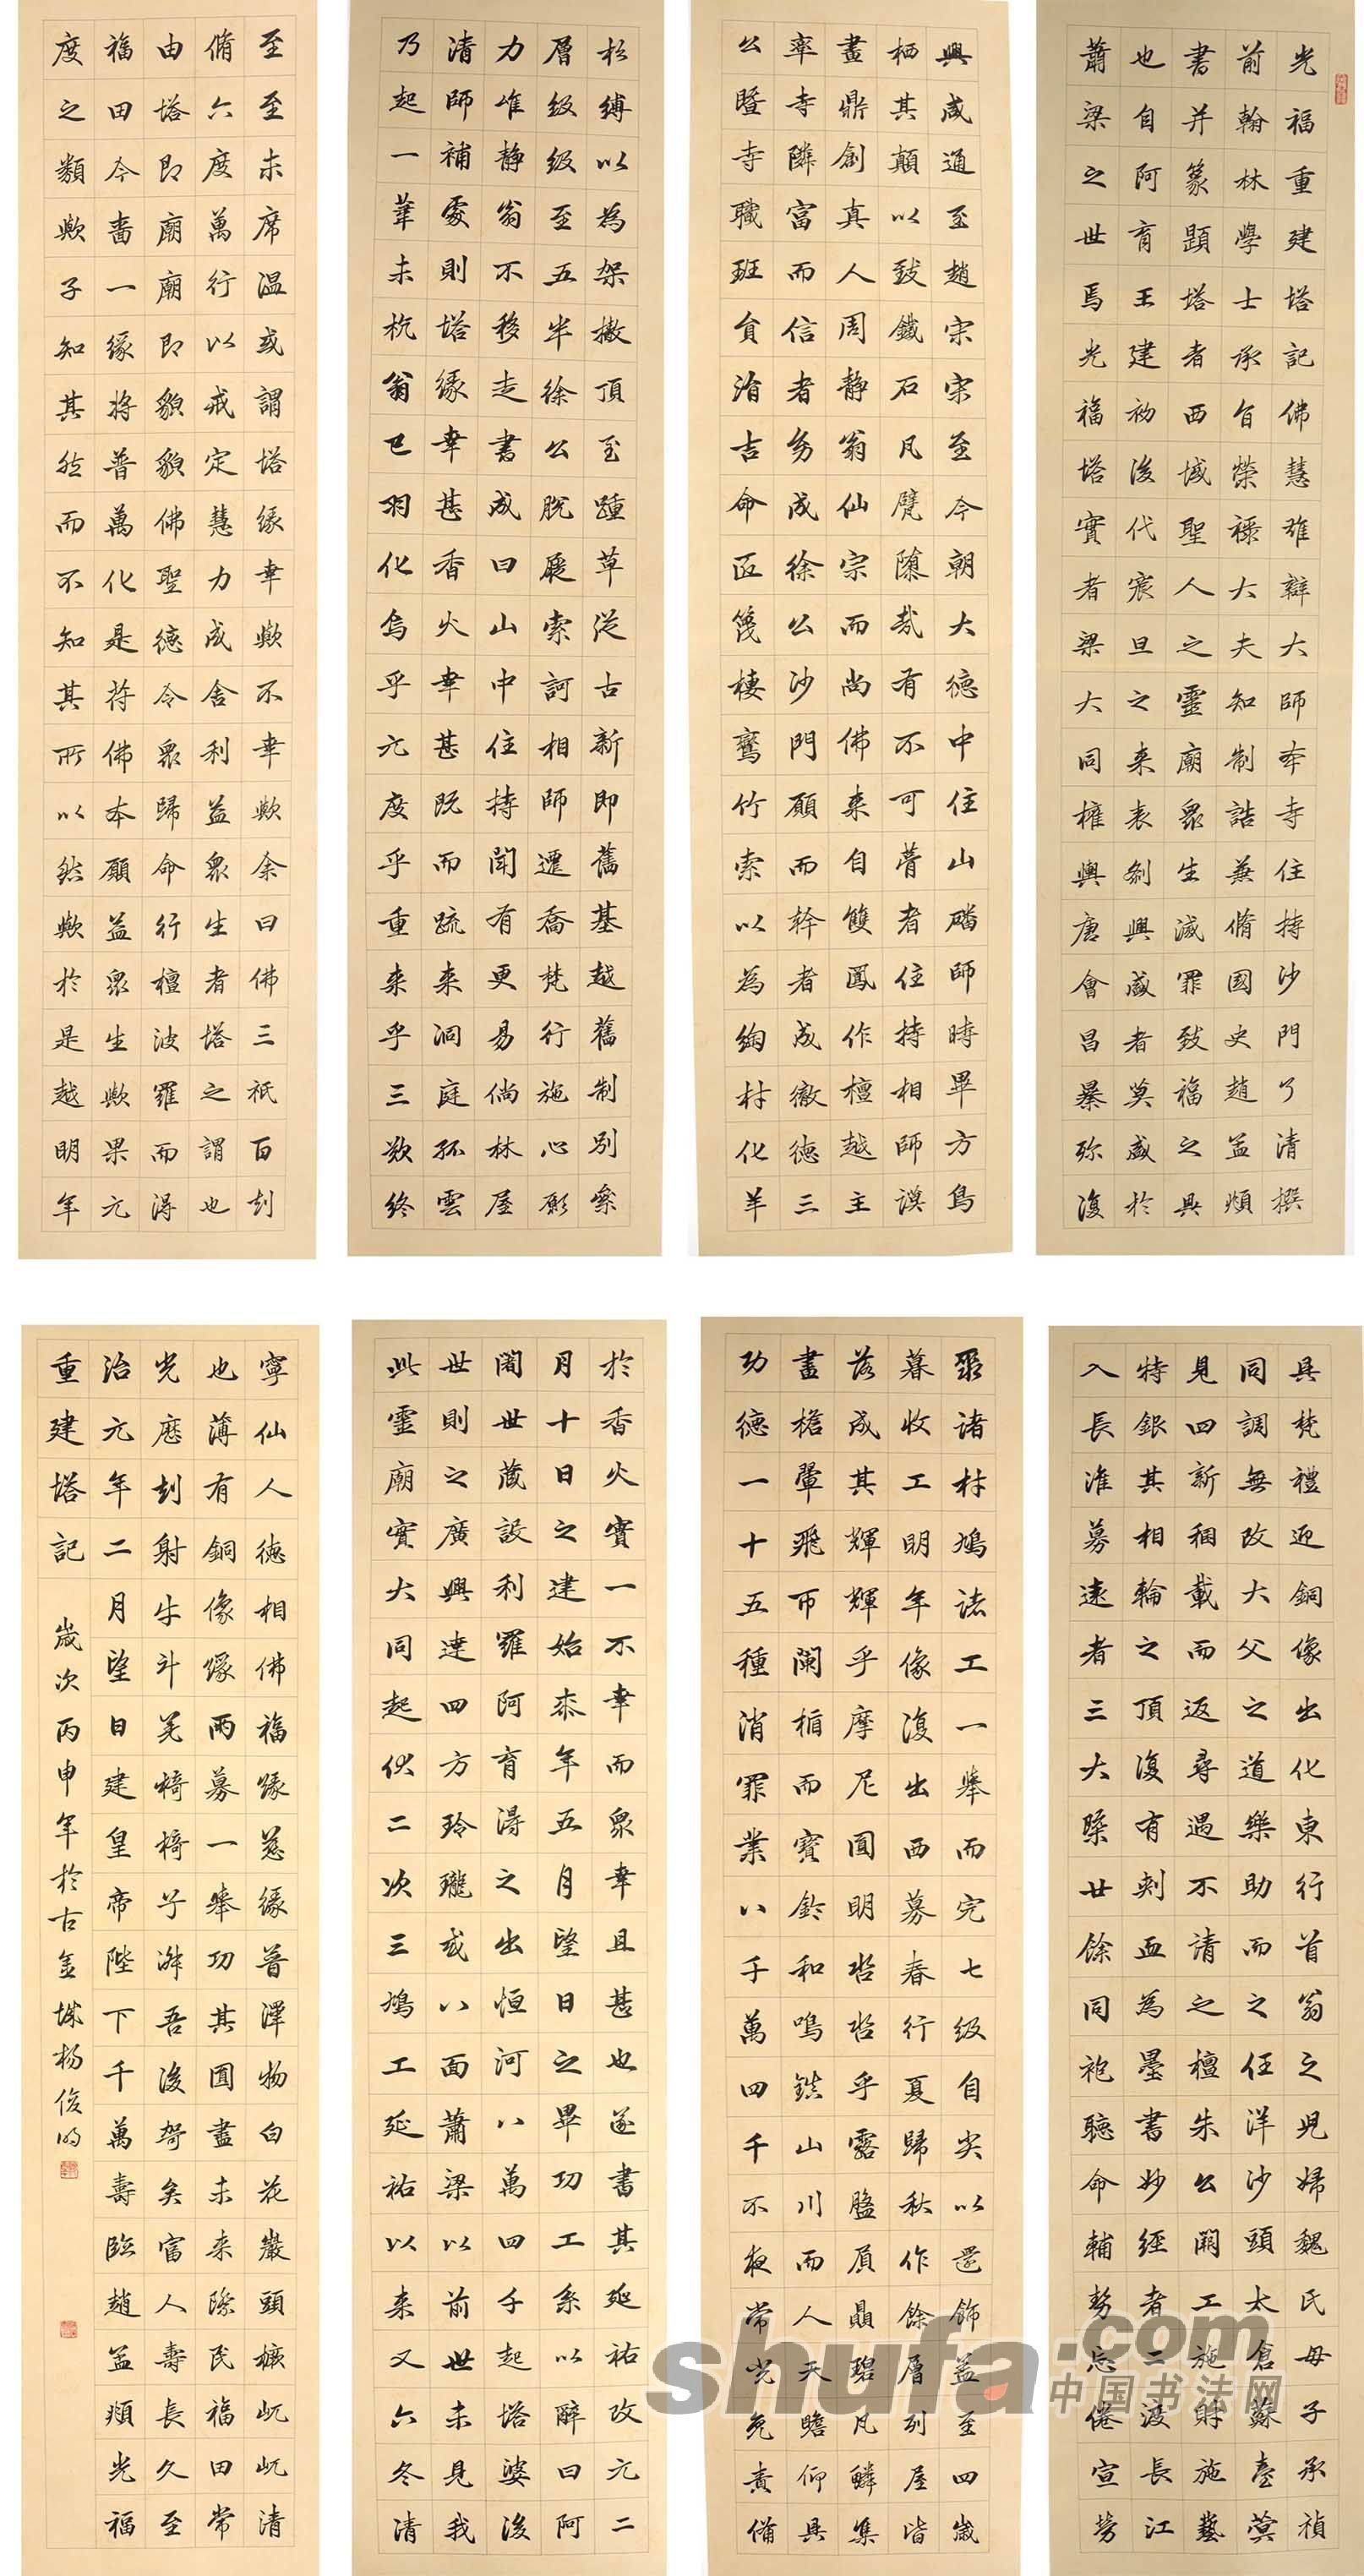 光福重建塔記佛慧雄辯大師本寺住持沙門了清撰
前翰林學士承旨榮祿大夫知制誥兼脩國史趙孟頫
書并篆題塔者西域聖人之靈廟衆生滅罪致福之具
也自阿育王建初後代宸旦之来表刹興盛者莫盛於
蕭梁之世焉光福塔實者梁大同權輿唐會昌暴殄復
興咸通至趙宋宋至今朝大德中住山磻師時畢方鳥
栖其顛以致鐵石凡甓隳哉有不可葺者住持相師謨
畫鼎創真人周静翁仙宗而尚佛来自雙鳳作檀越主
率寺隣富而信者務成徐公沙門願而幹者成徹德三
公暨寺職班負涓吉命匠篾棲鸞竹索以為綯村化羊
杉縛以為架撤頂至踵草從古新即舊基越舊制别衆
層级级至五半徐公脫屣索訶相師遷喬梵行施心願
力唯静翁不移走書成曰山中住持聞有更易倘林屋
清師補處則塔緣幸甚香火幸甚既而疏来洞庭孤雲
乃起一葦未杭翁已羽化烏乎六度乎重来乎三歎終
至至未席温或謂塔緣幸歟不幸歟余曰佛三祇百劫
脩六度萬行以戒定慧力成舍利益衆生者塔之謂也
由塔即廟廟即貌貌佛聖德令衆歸命行檀波羅而得
福田今嗇一緣將普萬化是符佛本願益衆生歟果六
度之類歟子知其然而不知其所以然歟於是越明年
具梵禮迎銅像出化東行首翁之兒婦魏氏母子承禎
同調無改大父之道樂助而之任洋沙頭太倉蘇臺蓂
見四新稛載而返尋遇不請之檀朱公闢工施財施藝
特銀其相輪之頂復有刺血為墨書妙經者二渡長江
入長淮募遠者三大檠廿餘同袍聽命輔勢忘倦宣勞
聚諸材鳩諸工一舉而完七级自尖以還飾益至四歲
暮收工明年像復出西募春行夏歸秋作餘層列屋皆
落成其輝輝乎摩尼圓明皓皓乎露盤屓贔碧凡鱗集
畫檐翬飛帀闌楯而寶鈴和鳴鎮山川而人天瞻仰具
功德一十五種消罪業八千萬四千不夜常光免責備
於香火實一不幸而衆幸且甚也遂書其延祐改元二
月十日之建始泰年五月望日之畢功工系以辭曰阿
閦世藏設利羅阿育得之出恒河八萬四千起塔婆後
世則之廣興建四方玲瓏或八面蕭梁以前世未見我
此靈廟實大同起伏二次三鳩工延祐以来又六冬清
寧仙人德相佛福緣慈緣普澤物白花巖頭橛屹屹清
也薄有銅像緣兩募一舉功其圓盡未来際民福田常
光歷劫射牛斗羌椅椅兮游吾後嗣矣富人壽長久至
治元年二月望日建皇帝陛下千萬壽臨趙孟頫光福
重建塔記
歲次丙申年於古盂城杨俊明
shufa.com
中国书法网